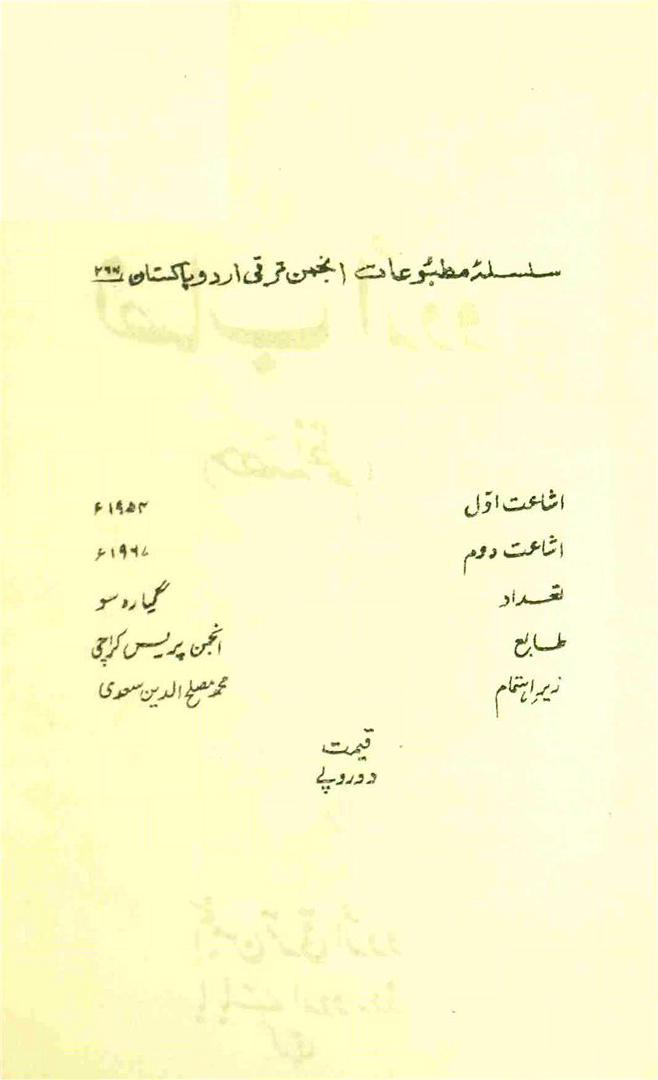 سلسلۂ مطبوعات انجمن ترقی اردو پاکستان ۲۶۷
اشاعت اوّل ۱۹۵۴ء
اشاعت دوم ۱۹۶۷ء
تعداد گیارہ سو
طابع انجمن پریس کراچی
زیر اہتمام محمد مصلح الدین سعدی
قیمت
دو روپے